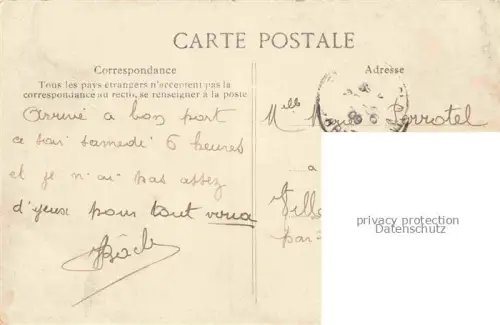 CARTE POSTALE
Correspondance
Tous les pays étrangers n'acceptent pas la
correspondance au recto, se renseigner à la poste
Arrivé a bon port
ce soir samedi 6 heures
et je n'ai pas assez
d'yeux pour tout
Adresse
Melle Perrotel
a
Ville
par
privacy protection
Datenschutz